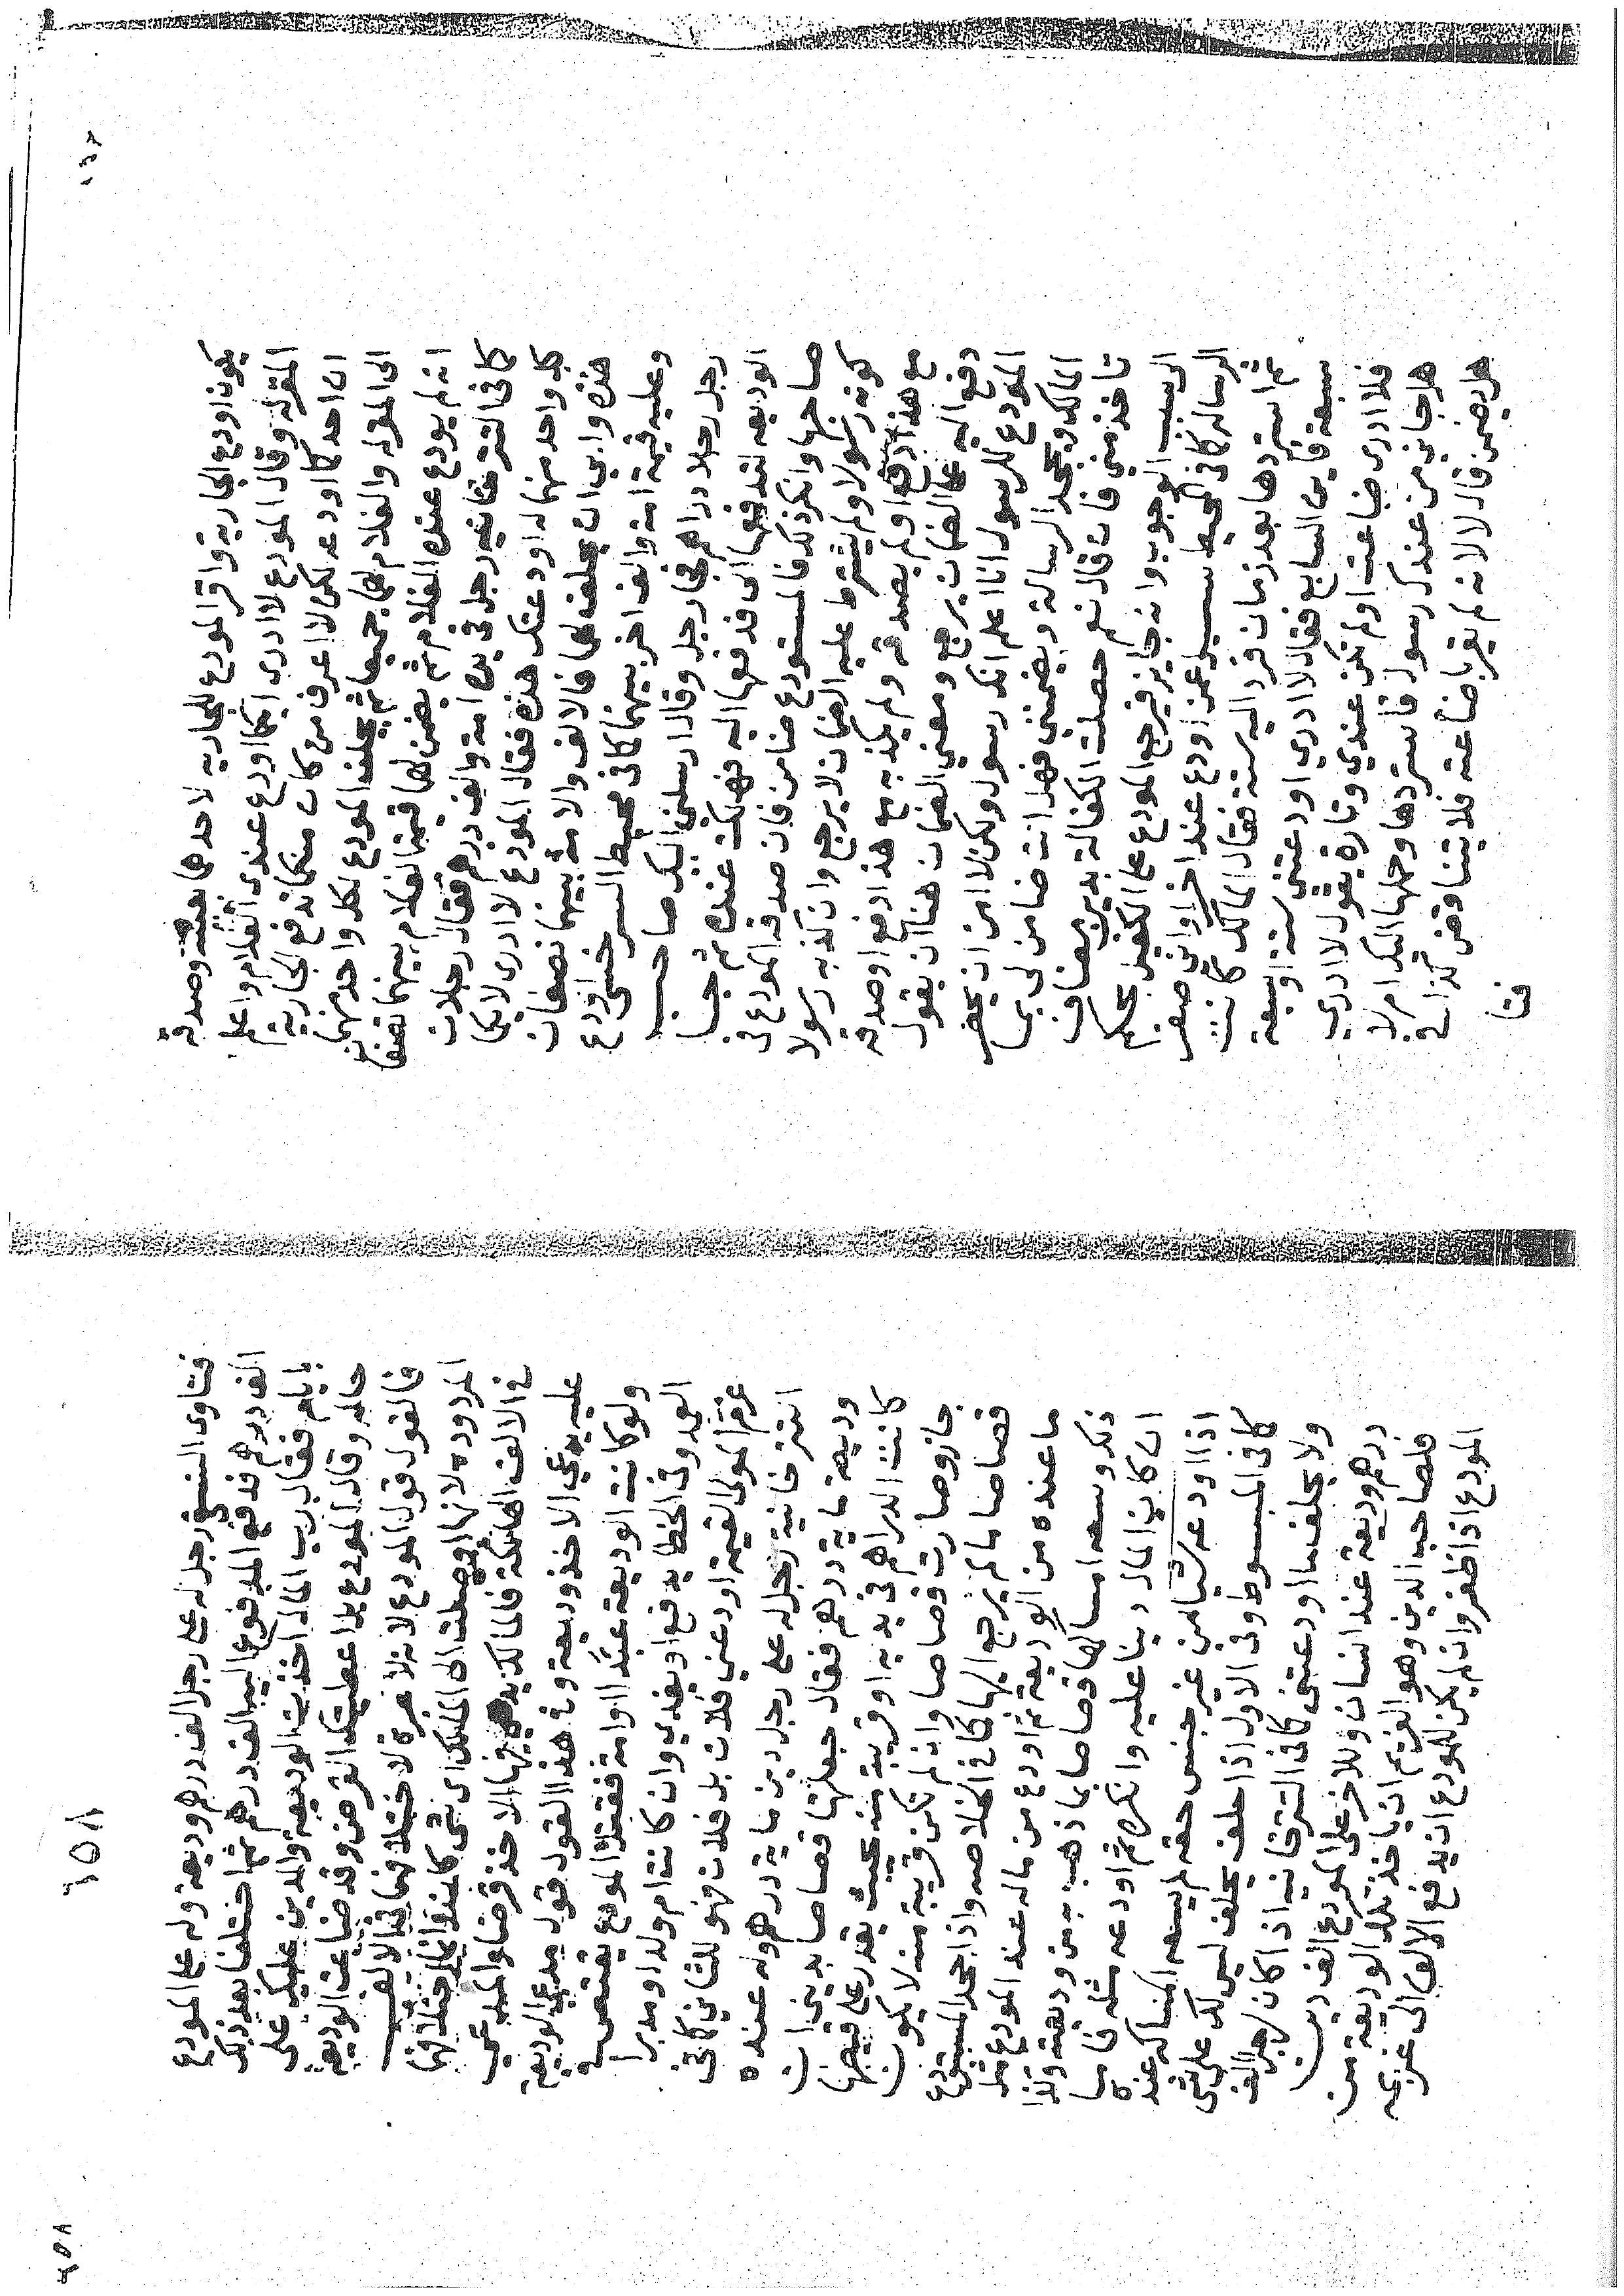 ١٥٧
يكون اودع الجارية واقر المودع للجارية لاحدهما بعينه وصدقه
المقر له وقال المودع لا ادري ايكما اودع عندي الغلام واعلم
ان احدكما اودعه لكن لا اعرف من كان منكما ندفع الجارية
الى المقر له والغلام لهما جميعا ثم يحلف المودع لكل واحد منهما
انه لم يودع عنده الغلام ثم يضمن لهما قيمة الغلام بينهما نصفا
كما في التترخانيه رجل في يده امة والف درهم فقال رجلان
كل واحد منهما له اودعتك هذه فقال المودع لا ادري لايكما
هذه وابى ان يحلف لهما فالالف والامة بينهما نصفان
وعليه قيمة امة والف اخر بينهما كما في محيط السرخسي اودع
رجل رجلا دراهم فجا رجل وقال ارسلني اليك صاحب
الوديعه لتدفعها الي فدفعها اليه فهلكت عنده ثم جا
صاحبها وانكر ذلك فالمستودع ضامن فان صدقه المودع في
كونه رسولا ولم يشترط عليه الضمان لا يرجع وان كذبه رسولا
مع هذا دفع او لم يصدقه ولم يكذبه مع هذا دفع او صدقه
دفع اليه على الضمان يرجع ومعنى الضمان هنا ان يقول
المودع للرسول انا اعلم انك رسول ولكن لا امن ان يحضر
المالك ويجحد الرسالة ويضمنني فهل انت ضامن لي بما
تاخذ مني فان قال نعم حصلت الكفالة بدين مضاف
الى سبب الوجوب وانه جايز فيرجع المودع على الكفيل بحكم
الرسالة كما في المحيط سيل عن اودع عند اخر اواني صفر
ثم استردها بعد زمان فرد اليه ستة فقال المالك كانت
سبعة فاين السابع فقال لا ادري اودعتني ستة او سبعة
فلا ادري ضاعت او لم تكن عندي وتارة يقول لا ادري
هل جاني من عندك رسول فاستردها وحملها اليك ام لا
هل يضمن قال لا لانه لم يقر باضاعته فلا يتناقض كذا في
فتا
١٥٨
فتاوى النسفي رجل له على رجل الف درهم وديعة وله على المودع
الف درهم فدفع المدفوع اليه الف درهم ثم اختلفا بعد ذلك
بايام فقال رب المال اخذت الوديعة والدين عليك على
حاله وقال المودع بل اعطيتك القرض وقد ضاعت الوديعة
فالقول قول المودع لانه لا عبرة لاختلافهما في الالف
المردوده لانها وصلت الى المالك اي شي كانت وانما اختلافهما
في الالف الهالكة فالمالك يدعي فيها الاخذ قرضا والمدعي
عليه يدعي الاخذ وديعة وفي هذا القول قول مدعي الوديعة
ولو كانت الوديعة عبدا او امة فقتله المودع يقتص
العمد وفي الخطا يدفع او يفدي وان كانت ام ولد او مدبرا
غرم المولى القيمة اودعني فلان بل فلان فهو للثاني كما في
التترخانية رجل له على رجل دين ماية درهم وله عنده
وديعة ماية درهم فقال جعلتها قصاصا بديني ان
كانت الدراهم في يديه او قريبة منه بحيث يقدر على قبضها
جاز وصارت قصاصا وان لم تكن قريبة منه لا يكون
قصاصا ما لم يرجع اليها كما في الخلاصه واذا جحد المستودع
ما عنده من الوديعة ثم اودع من ماله عند المودع مثل
ذلك وسعه امساكها قصاصا بما ذهب به من وديعته وكذا
ان كان المال دينا عليه وانكره ثم اودعه مثله فاما
اذا اودعه شيا من غير جنس حقه لم يسعه امساكه عنده
كما في المبسوط وفي الاول اذا حلف يحلف ليس لك علي شي
ولا يحلف ما اودعتني كما في التترخانيه اذا كان لرجل الف
درهم وديعة عند انسان وللاخر على المودع الف دين
فلصاحب الدين وهو الغريم ان ياخذ تلك الوديعة من
المودع اذا ظفر وان لم يكن للمودع ان يدفع الالف الى غريمه